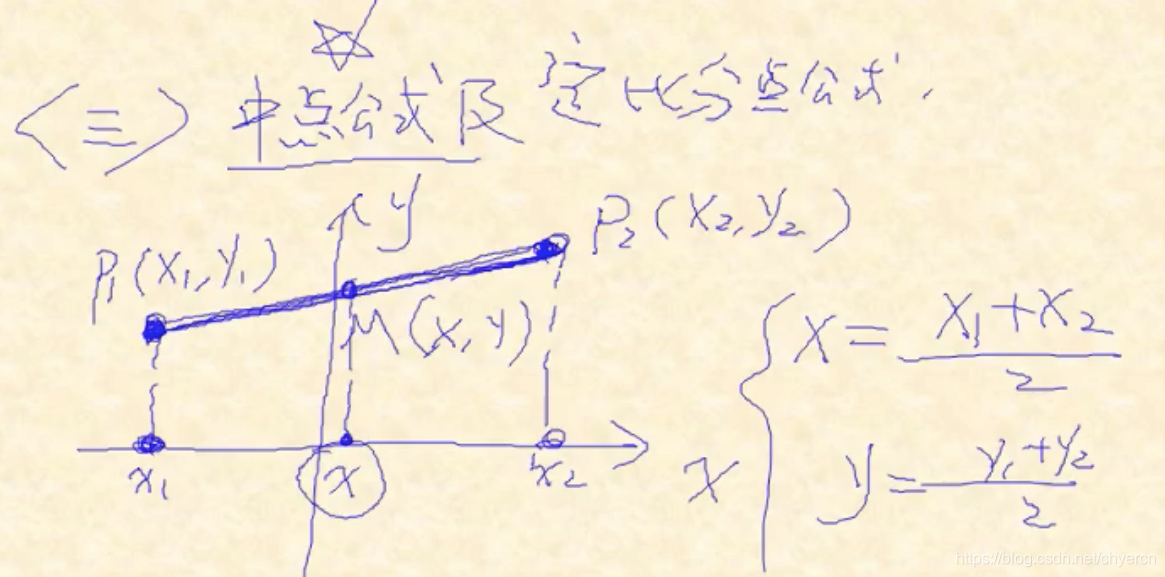 <三> 中点公式及定比分点公式.
y
P₂(x₂,y₂)
P₁(x₁,y₁)
M(x,y)
x = (x₁+x₂)/2
x₁ x x₂ x
y = (y₁+y₂)/2
https://blog.csdn.net/chyercn